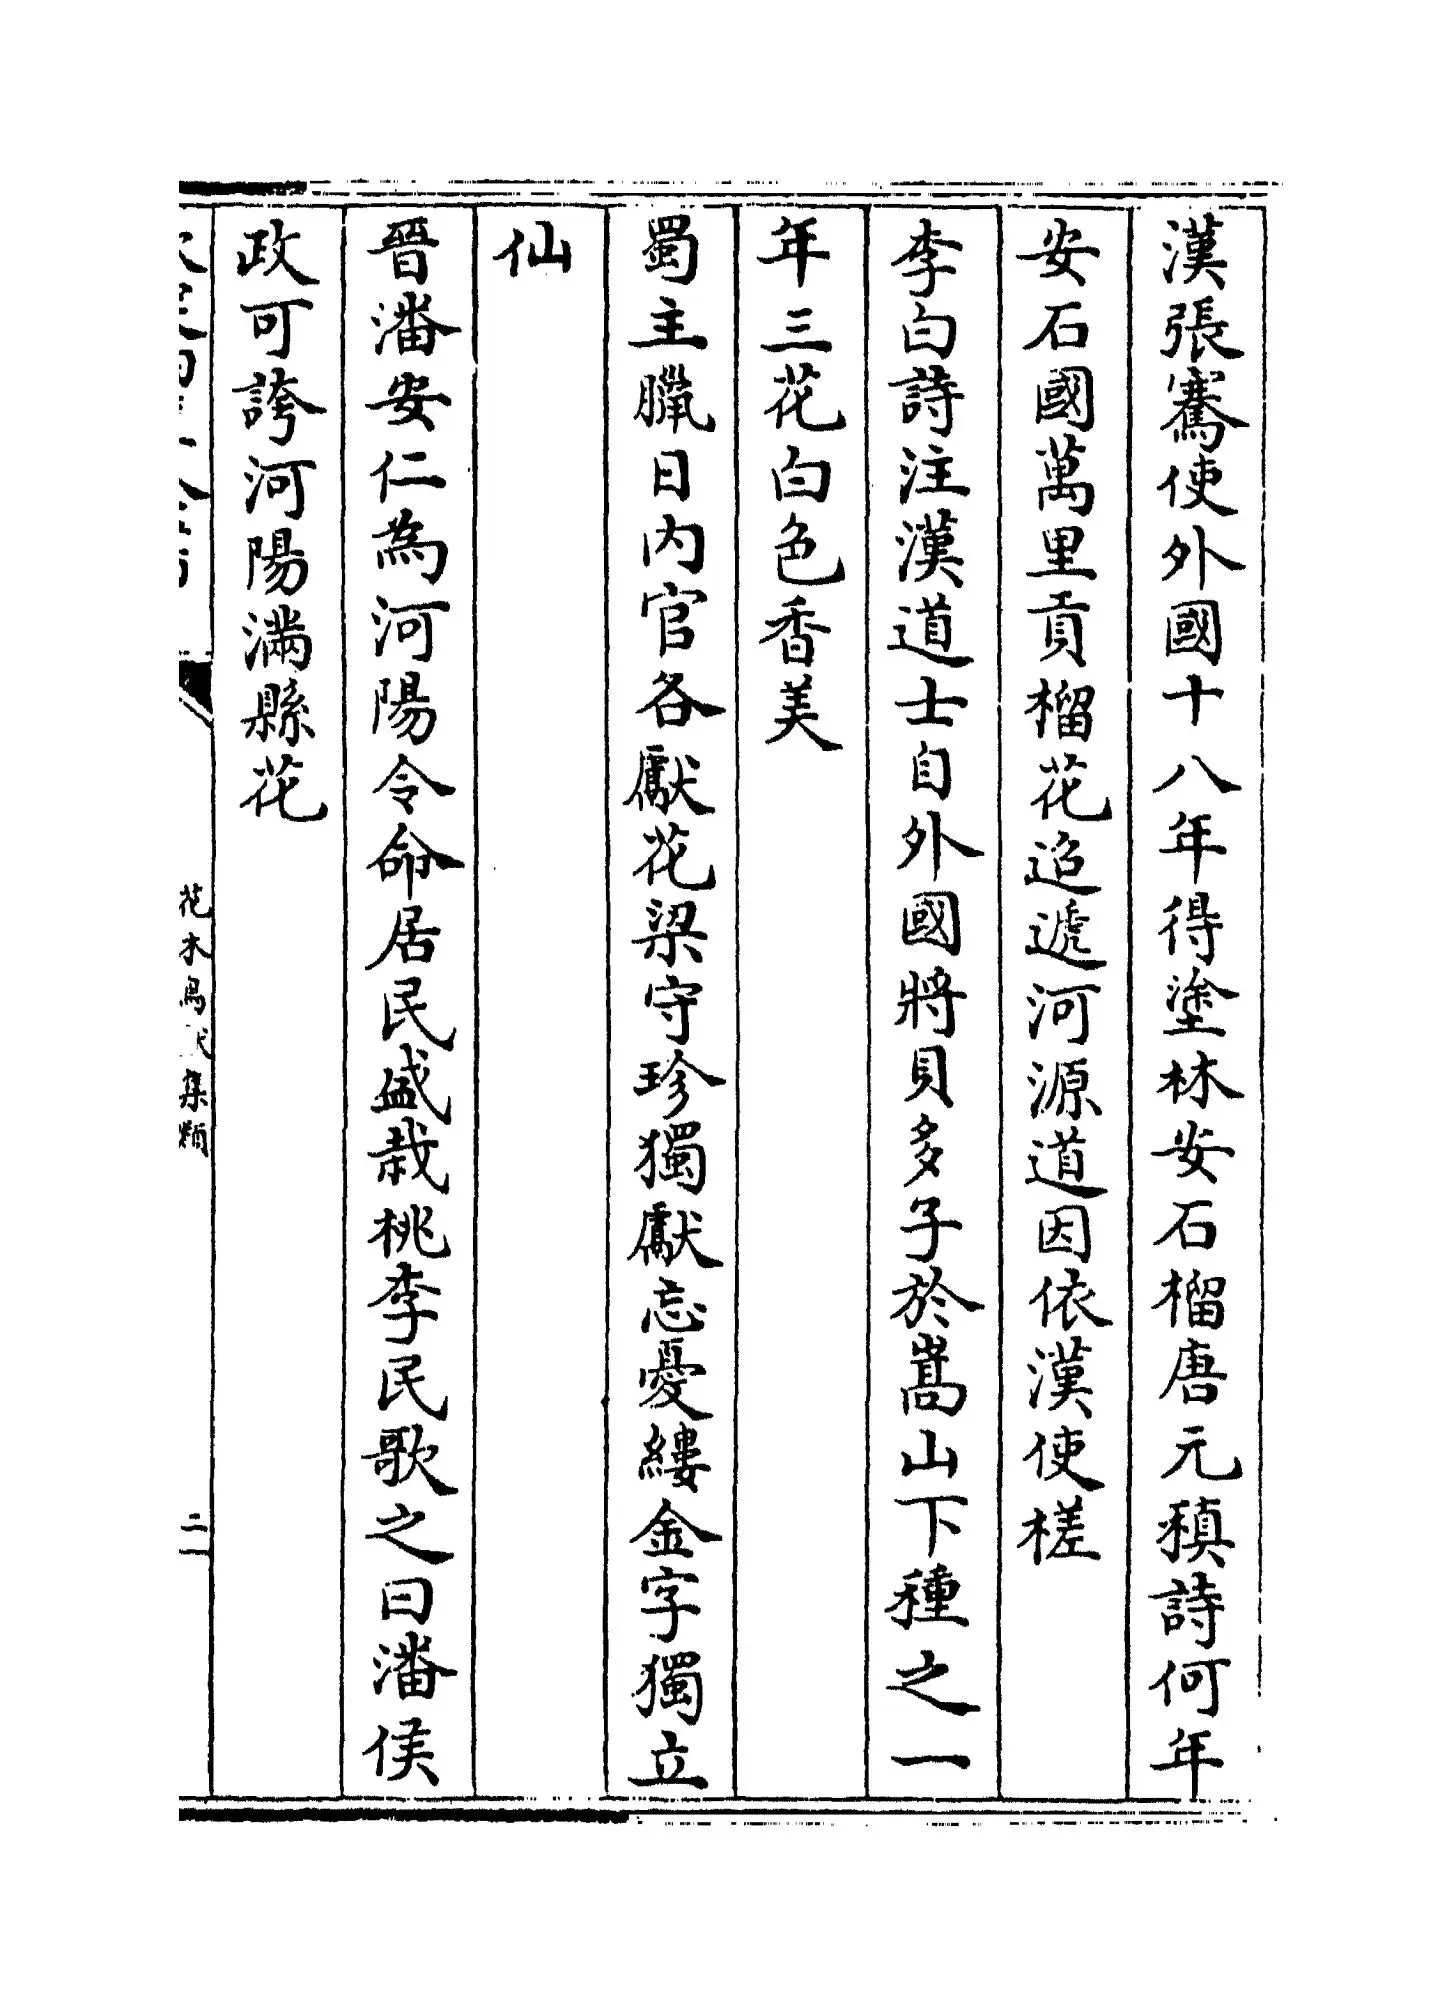 漢張騫使外國十八年得塗林安石榴唐元稹詩何年
安石國萬里貢榴花迢遞河源道因依漢使槎
李白詩注漢道士自外國將貝多子於嵩山下種之一
年三花白色香美
蜀主臘日内官各獻花梁守珍獨獻忘憂縷金字獨立
仙
晉潘安仁為河陽令命居民盛栽桃李民歌之曰潘侯
政可誇河陽滿縣花
花木鳥獸集類
二